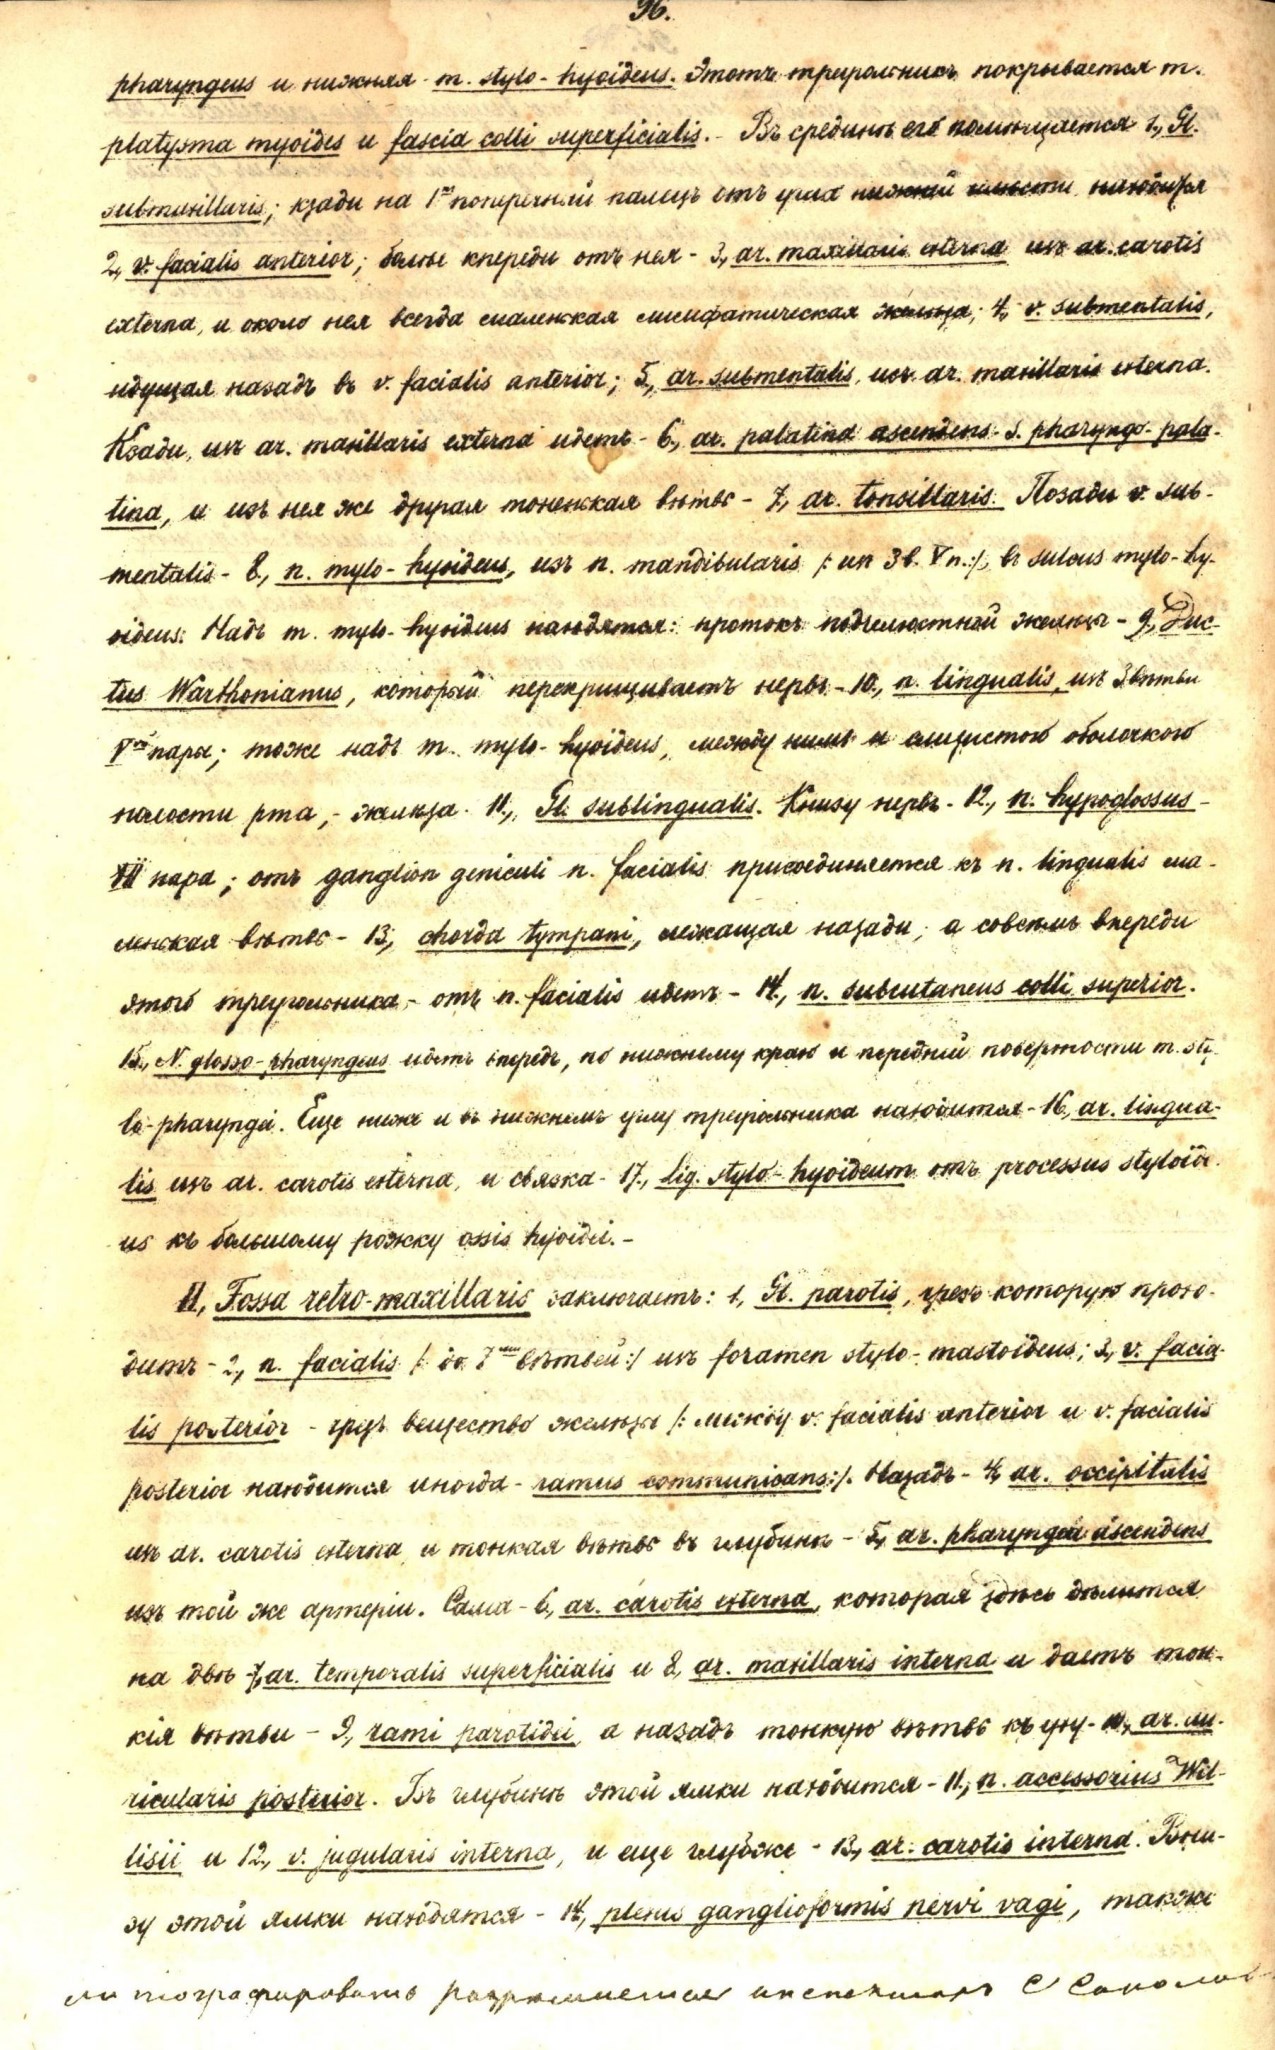 96.
pharyngeus и нижняя - m. stylo-hyoideus. Этотъ треугольникъ покрывается m.
platysma myoides и fascia colli superficialis. - Въ срединѣ его помѣщается 1, Gl.
submaxillaris; кзади на 1 поперечный палецъ отъ угла нижней челюсти находится
2, v. facialis anterior; болѣе кпереди отъ нея - 3, ar. maxillaris externa изъ ar. carotis
externa, и около нея всегда маленькая лимфатическая железа; 4, v. submentalis,
идущая назадъ въ v. facialis anterior; 5, ar. submentalis, изъ ar. maxillaris externa.
Кзади, изъ ar. maxillaris externa идетъ - 6, ar. palatina ascendens s. pharyngo-pala-
tina, и изъ нея же другая тоненькая вѣтвь - 7, ar. tonsillaris. Позади v. sub-
mentalis - 8, n. mylo-hyoideus, изъ n. mandibularis /: изъ 3 в. V п.:/, въ sulcus mylo-hy-
oideus. Надъ m. mylo-hyoideus находятся: протокъ подчелюстной железы - 9, Duc-
tus Warthonianus, который перекрещиваетъ нервъ - 10, n. lingualis, изъ 3 вѣтви
Vой пары; тоже надъ m. mylo-hyoideus, между нимъ и слизистою оболочкою
полости рта, - железа - 11, Gl. sublingualis. Книзу нервъ - 12, n. hypoglossus -
XII пара; отъ ganglion geniculi n. facialis присоединяется къ n. lingualis ма-
ленькая вѣтвь - 13, chorda tympani, лежащая назади; а совсѣмъ впереди
этого треугольника - отъ n. facialis идетъ - 14, n. subcutaneus colli superior.
15, N. glosso-pharyngeus идетъ впередъ, по нижнему краю и передней поверхности m. sty-
lo-pharyngei. Еще ниже и въ нижнемъ углу треугольника находится - 16, ar. lingua-
lis изъ ar. carotis externa, и связка - 17, lig. stylo-hyoideum отъ processus styloide-
us къ большому рожку ossis hyoidei. -
II, Fossa retro-maxillaris заключаетъ: 1, Gl. parotis, чрезъ которую прохо-
дитъ - 2, n. facialis /: до 7ми вѣтвей:/ изъ foramen stylo-mastoideus; 3, v. facia-
lis posterior - чрезъ вещество железы /: между v. facialis anterior и v. facialis
posterior находится иногда - ramus communicans:/. Назадъ - 4, ar. occipitalis
изъ ar. carotis externa и тонкая вѣтвь въ глубинѣ - 5, ar. pharyngea ascendens
изъ той же артеріи. Сама - 6, ar. carotis externa, которая здѣсь дѣлится
на двѣ - 7, ar. temporalis superficialis и 8, ar. maxillaris interna и даетъ тон-
кія вѣтви - 9, rami parotidei, а назадъ тонкую вѣтвь къ уху - 10, ar. au-
ricularis posterior. Въ глубинѣ этой ямки находится - 11, n. accessorius Wil-
lisii и 12, v. jugularis interna, и еще глубже - 13, ar. carotis interna. Вни-
зу этой ямки находятся - 14, plexus ganglioformis nervi vagi, также
литографировать разрѣшается инспекторъ С Соколов